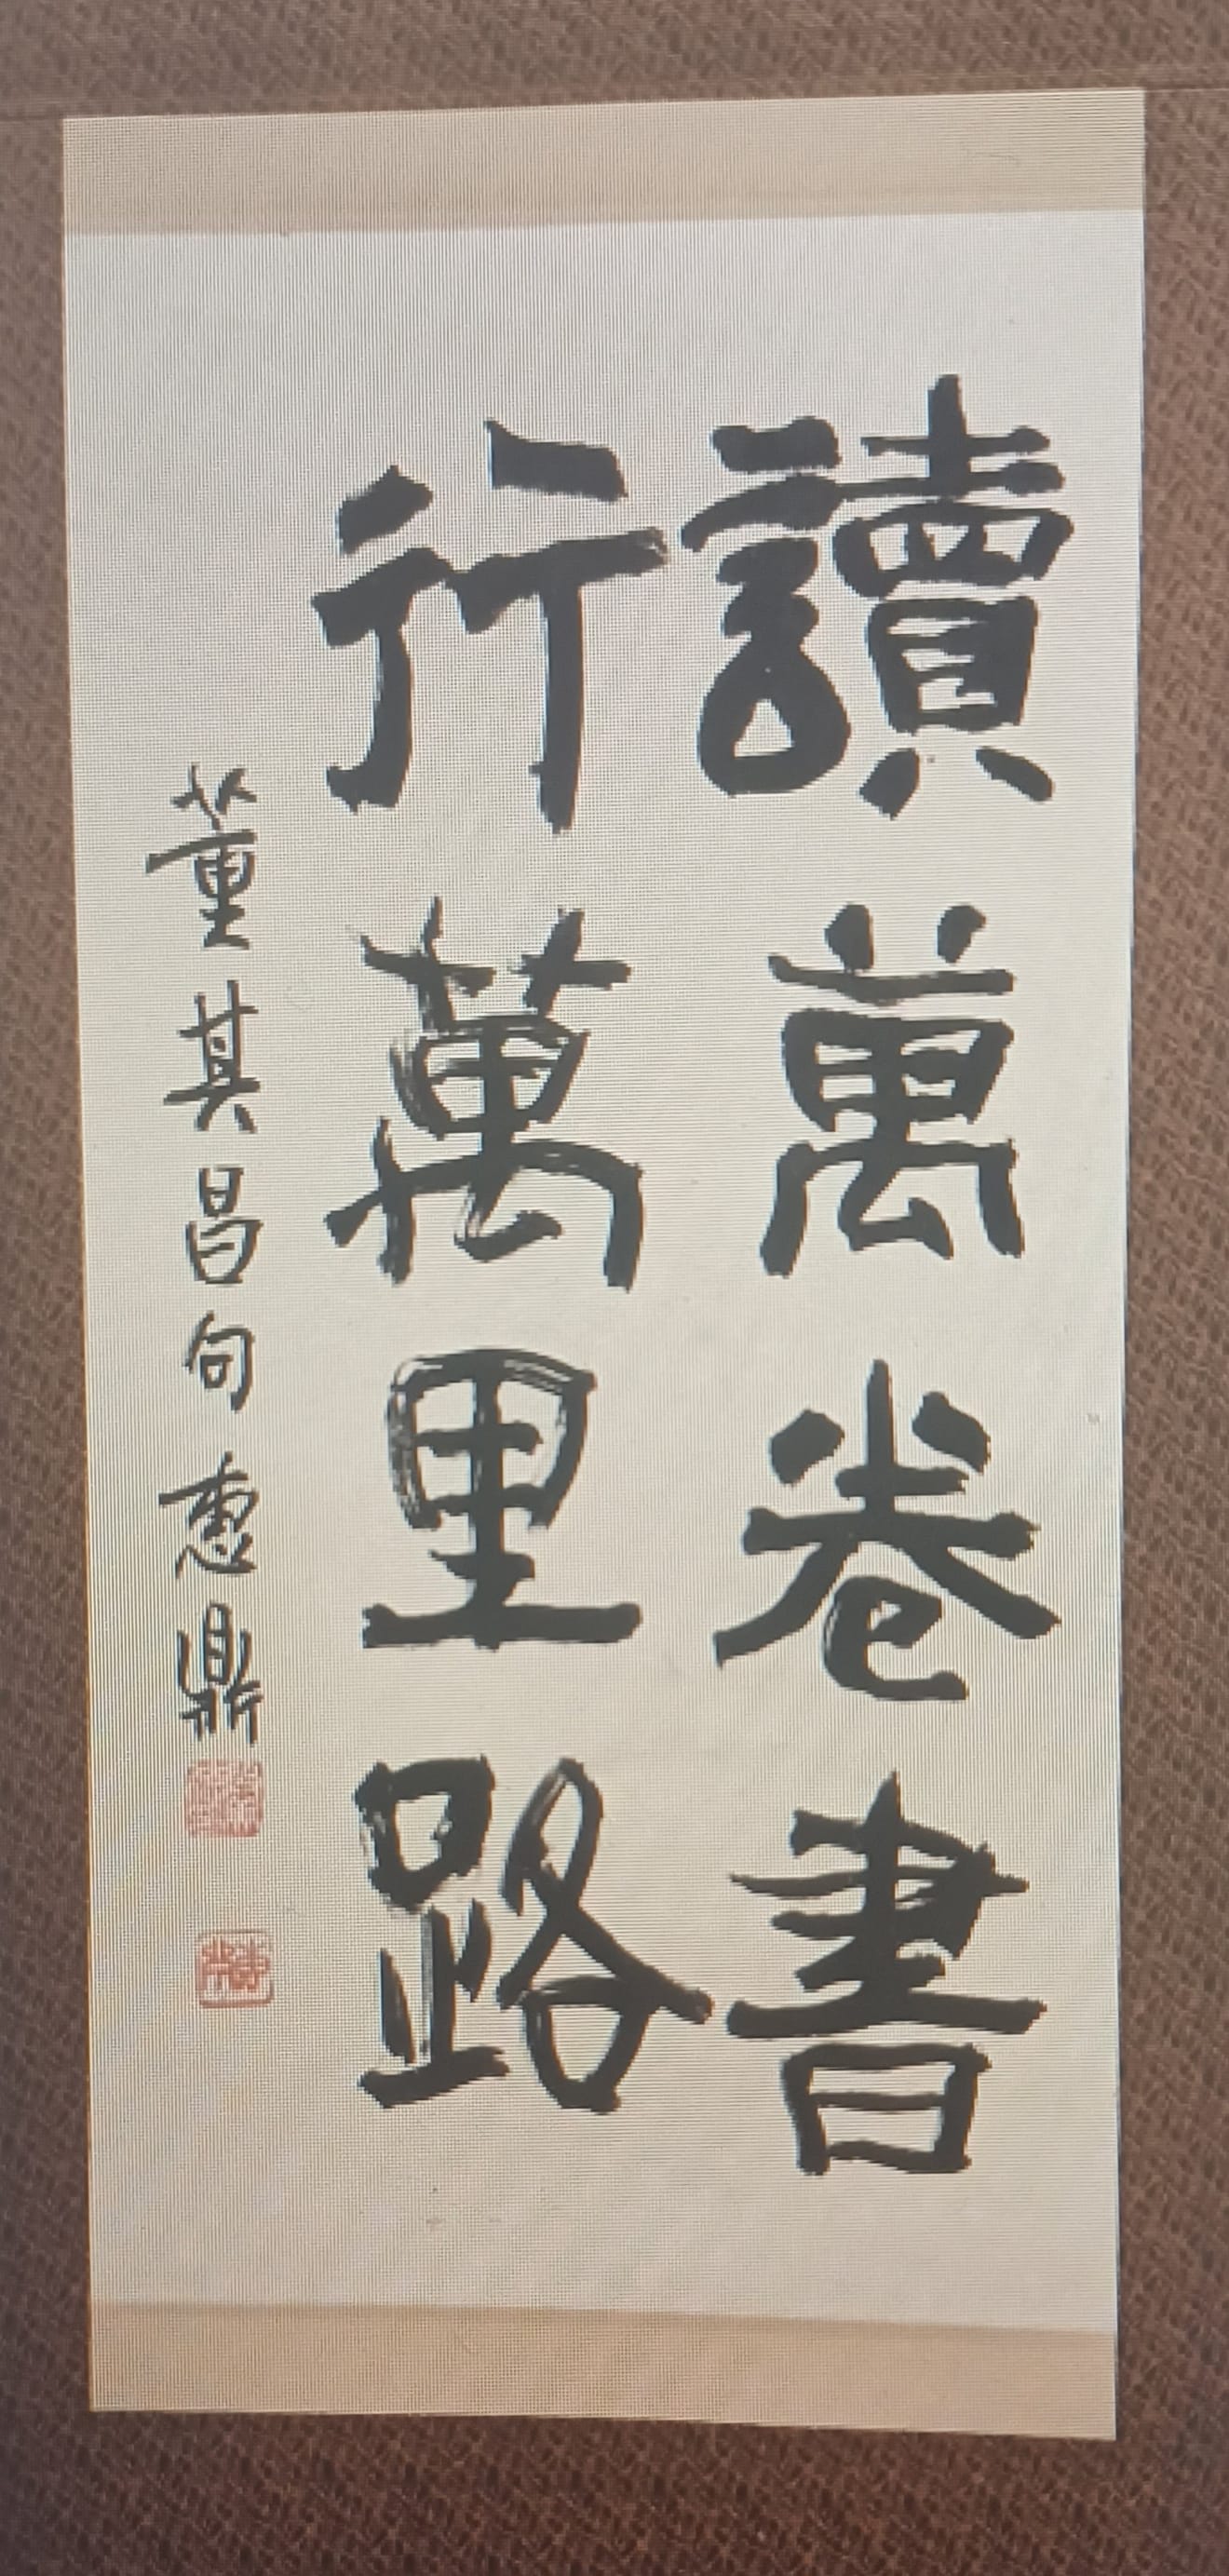 讀萬卷書
行萬里路
董其昌句 惠鼎